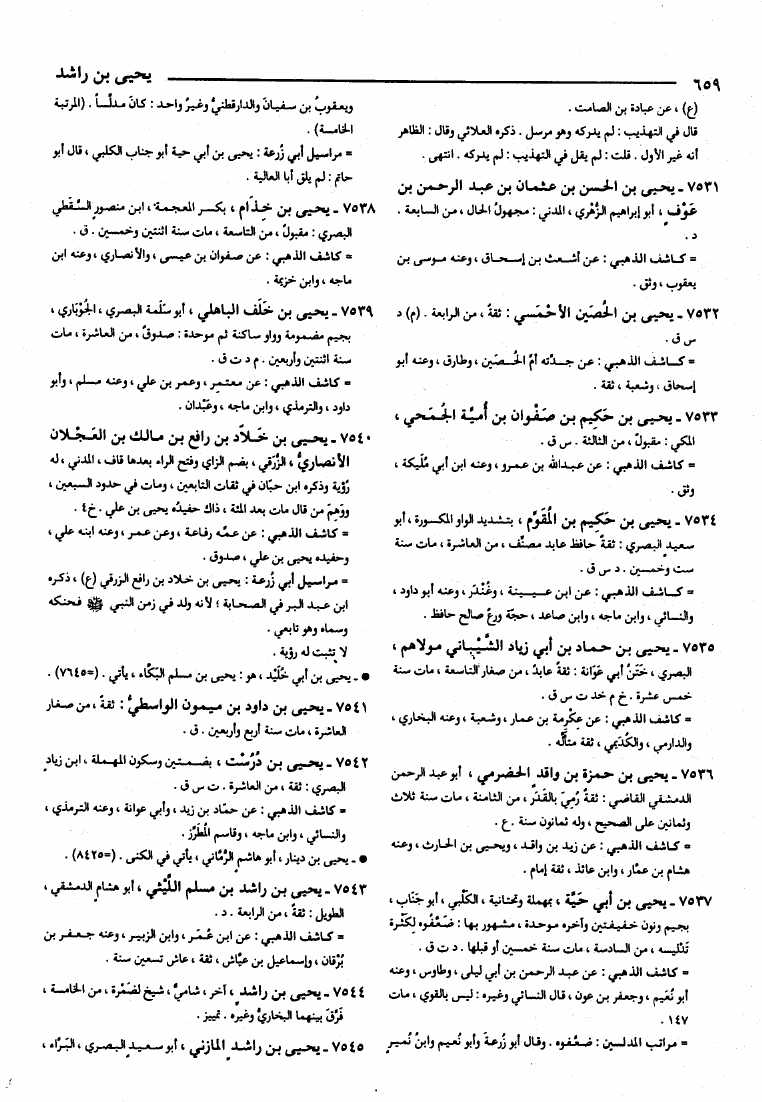 ٦٥٩
يحيى بن راشد
(ع) ، عن عبادة بن الصامت .
قال في التهذيب : لم يدركه وهو مرسل . ذكره العلائي وقال : الظاهر
أنه غير الأول . قلت : لم يقل في التهذيب : لم يدركه . انتهى .
٧٥٣١ ـ يحيى بن الحسن بن عثمان بن عبد الرحمن بن
عَوْفٍ ، أبو إبراهيم الزُّهْري ، المدني : مجهولُ الحال ، من السابعة .
د .
= كاشف الذهبي : عن أشعث بن إسحاق ، وعنه موسى بن
يعقوب ، وثق .
٧٥٣٢ ـ يحيى بن الحُصَين الأحْمَسي : ثقةٌ ، من الرابعة . (م) د
س ق .
= كاشف الذهبي : عن جدّته أمّ الحُصَين ، وطارق ، وعنه أبو
إسحاق ، وشعبة ، ثقة .
٧٥٣٣ ـ يحيى بن حَكِيم بن صَفْوان بن أُميَّة الجُمَحي ،
المكي : مقبولٌ ، من الثالثة . س ق .
= كاشف الذهبي : عن عبدالله بن عمرو ، وعنه ابن أبي مُلَيكة ،
وثق .
٧٥٣٤ ـ يحيى بن حَكِيم بن المُقَوِّم ، بتشديد الواو المكسورة ، أبو
سعيد البصري : ثقةٌ حافظ عابد مصنِّف ، من العاشرة ، مات سنة
ست وخمسين . د س ق .
= كاشف الذهبي : عن ابن عيينة ، وغُنْدَر ، وعنه أبو داود ،
والنسائي ، وابن ماجه ، وابن صاعد ، حجّة ورعٌ صالح حافظ .
٧٥٣٥ ـ يحيى بن حماد بن أبي زياد الشَّيْباني مولاهم ،
البصري ، خَتَنُ أبي عَوَانة : ثقةٌ عابدٌ ، من صغار التاسعة ، مات سنة
خمس عشرة . خ م خد ت س ق .
= كاشف الذهبي : عن عِكرِمة بن عمار ، وشعبة ، وعنه البخاري ،
والدارمي ، والكُدَيمي ، ثقة متألِّه .
٧٥٣٦ ـ يحيى بن حمزة بن واقد الحضرمي ، أبو عبد الرحمن
الدمشقي القاضي : ثقةٌ رُميَ بالقَدَر ، من الثامنة ، مات سنة ثلاث
وثمانين على الصحيح ، وله ثمانون سنة . ع .
= كاشف الذهبي : عن زيد بن واقد ، ويحيى بن الحارث ، وعنه
هشام بن عمّار ، وابن عائذ ، ثقة إمام .
٧٥٣٧ ـ يحيى بن أبي حَيَّة ، بمهملة وتحتانية ، الكلْبي ، أبو جَنَاب ،
بجيم ونون خفيفتين وآخره موحدة ، مشهور بها : ضَعَّفوه لكَثْرة
تَدْليسه ، من السادسة ، مات سنة خمسين أو قبلها . د ت ق .
= كاشف الذهبي : عن عبد الرحمن بن أبي ليلى ، وطاوس ، وعنه
أبو نُعَيم ، وجعفر بن عون ، قال النسائي وغيره : ليس بالقوي ، مات
١٤٧ .
= مراتب المدلسين : ضعّفوه . وقال أبو زُرعةَ وأبو نُعيم وابنُ نُميرٍ
ويعقوبُ بن سفيانَ والدارقطنيُّ وغيرُ واحد : كانَ مدلّساً . (المرتبة
الخامسة) .
= مراسيل أبي زُرعة : يحيى بن أبي حية أبو جناب الكلبي ، قال أبو
حاتم : لم يلق أبا العالية .
٧٥٣٨ ـ يحيى بن خِذَام ، بكسر المعجمة ، ابن منصور السَّقَطي
البصري : مقبولٌ ، من التاسعة ، مات سنة اثنتين وخمسين . ق .
= كاشف الذهبي : عن صفوان بن عيسى ، والأنصاري ، وعنه ابن
ماجه ، وابن خزيمة .
٧٥٣٩ ـ يحيى بن خَلَف الباهلي ، أبو سَلَمة البصري ، الجُوبَاري ،
بجيم مضمومة وواو ساكنة ثم موحدة : صدوقٌ ، من العاشرة ، مات
سنة اثنتين وأربعين . م د ت ق .
= كاشف الذهبي : عن معتمر ، وعمر بن علي ، وعنه مسلم ، وأبو
داود ، والترمذي ، وابن ماجه ، وعَبْدان .
٧٥٤٠ ـ يحيى بن خلاّد بن رافع بن مالك بن العَجْلان
الأنصاريُّ ، الزُّرَقي ، بضم الزاي وفتح الراء بعدها قاف ، المدني ، له
رُؤية وذكره ابن حبّان في ثقات التابعين ، ومات في حدود السبعين ،
ووَهِمَ من قال مات بعد المئة ، ذاك حفيدُه يحيى بن علي . خ٤ .
= كاشف الذهبي : عن عمّه رفاعة ، وعن عمر ، وعنه ابنه علي ،
وحفيده يحيى بن علي ، صدوق .
= مراسيل أبي زُرعة : يحيى بن خلاد بن رافع الزرقي (ع) ، ذكره
ابن عبد البر في الصحابة ؛ لأنه ولد في زمن النبي ﷺ فحنكه
وسماه وهو تابعي .
لا تثبت له رؤية .
● ـ يحيى بن أبي خُلَيْد ، هو : يحيى بن مسلم البَكّاء ، يأتي . (=٧٦٤٥) .
٧٥٤١ ـ يحيى بن داود بن ميمون الواسطيُّ : ثقةٌ ، من صغار
العاشرة ، مات سنة أربع وأربعين . ق .
٧٥٤٢ ـ يحيى بن دُرُسْت ، بضمتين وسكون المهملة ، ابن زيادٍ
البصري : ثقة ، من العاشرة . ت س ق .
= كاشف الذهبي : عن حمّاد بن زيد ، وأبي عوانة ، وعنه الترمذي ،
والنسائي ، وابن ماجه ، وقاسم المُطَرِّز .
● ـ يحيى بن دينار ، أبو هاشم الرُّمّاني ، يأتي في الكنى . (=٨٤٢٥) .
٧٥٤٣ ـ يحيى بن راشد بن مسلم اللَّيْثي ، أبو هشام الدمشقي ،
الطويل : ثقةٌ ، من الرابعة . د .
= كاشف الذهبي : عن ابن عُمَر ، وابن الزبير ، وعنه جعفر بن
بُرْقان ، وإسماعيل بن عيّاش ، ثقة ، عاش تسعين سنة .
٧٥٤٤ ـ يحيى بن راشدٍ ، آخر ، شاميٌّ ، شيخ لضَمْرة ، من الخامسة ،
فَرَّقَ بينهما البخاريُّ وغيره . تمييز .
٧٥٤٥ ـ يحيى بن راشد المازني ، أبو سعيد البصري ، البَرَّاء ،